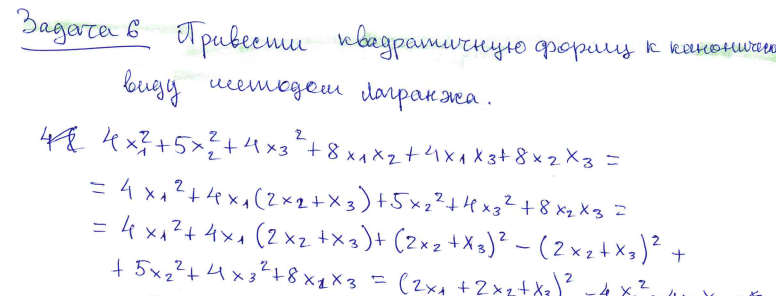 Задача 6 Привести квадратичную форму к каноничес
виду методом Лагранжа.
4x₁²+5x₂²+4x₃²+8x₁x₂+4x₁x₃+8x₂x₃ =
= 4x₁²+4x₁(2x₂+x₃)+5x₂²+4x₃²+8x₂x₃ =
= 4x₁²+4x₁(2x₂+x₃)+(2x₂+x₃)²-(2x₂+x₃)²+
+5x₂²+4x₃²+8x₂x₃ = (2x₁+2x₂+x₃)²-4x₂²